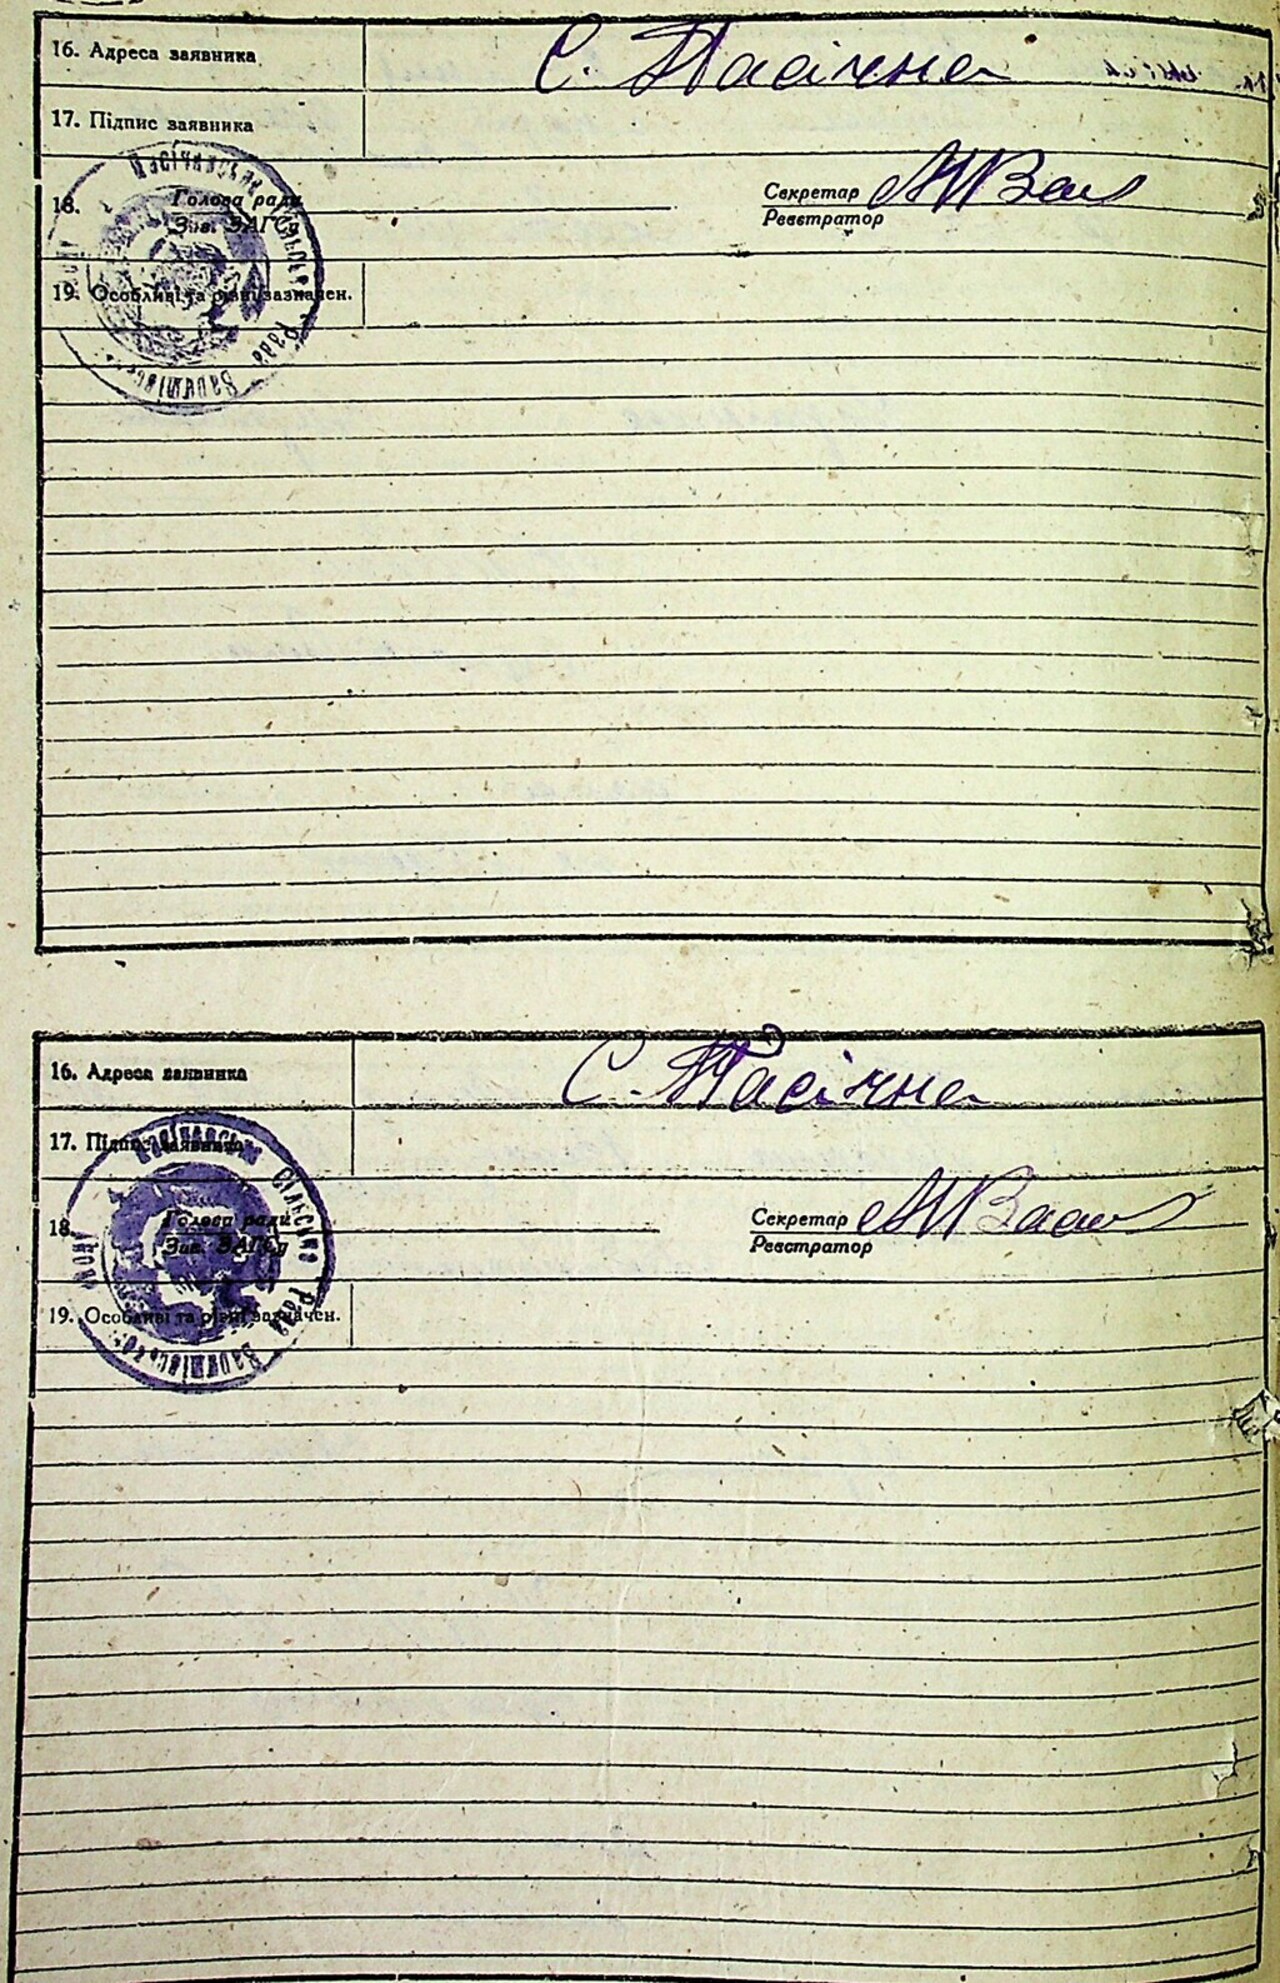 16. Адреса заявника С. Пасічна
17. Підпис заявника
18. Голова ради
Зав. ЗАГСу
Секретар
Реєстратор
19. Особливі та різні зазначен.
16. Адреса заявника С. Пасічна
17. Підпис заявника
18. Голова ради
Зав. ЗАГСу
Секретар
Реєстратор
19. Особливі та різні зазначен.
Сільська Рада